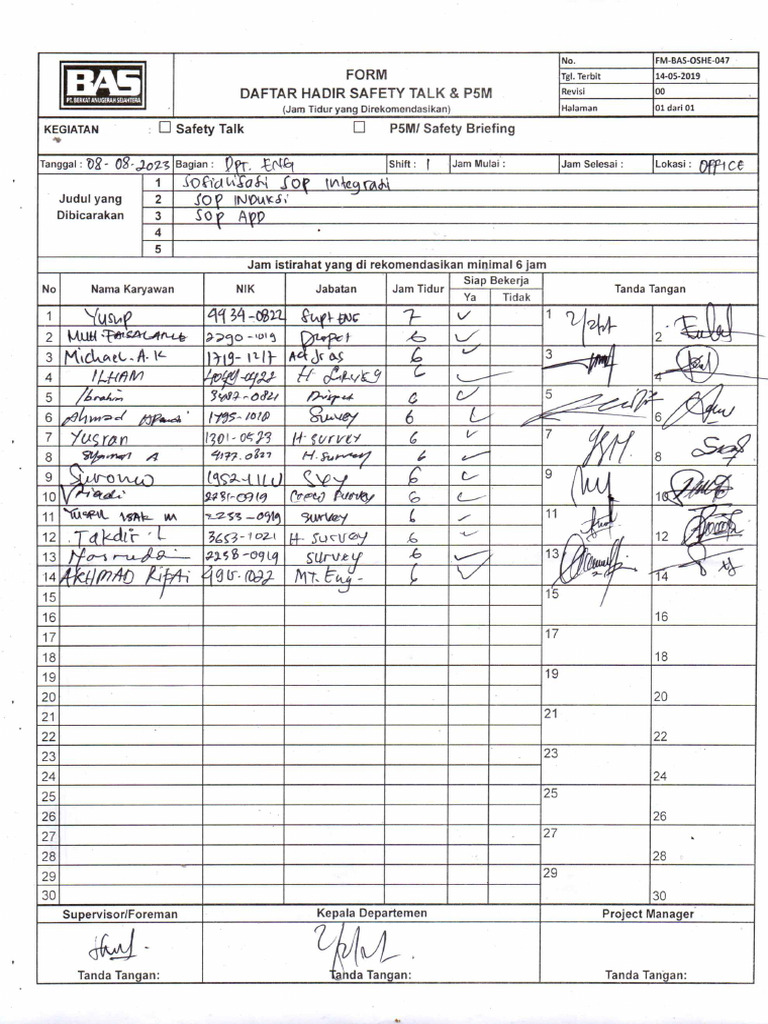 BAS
PT. BERKAT ANUGERAH SEJAHTERA
FORM
DAFTAR HADIR SAFETY TALK & P5M
(Jam Tidur yang Direkomendasikan)
No. FM-BAS-OSHE-047
Tgl. Terbit 14-05-2019
Revisi 00
Halaman 01 dari 01
KEGIATAN : Safety Talk P5M/ Safety Briefing
Tanggal : 08-08-2023 Bagian : Dpt. ENG Shift : 1 Jam Mulai : Jam Selesai : Lokasi : OFFICE
Judul yang Dibicarakan
1 Sosialisasi SOP Integrasi
2 SOP INDUKSI
3 SOP APD
4
5
Jam istirahat yang di rekomendasikan minimal 6 jam
No Nama Karyawan NIK Jabatan Jam Tidur Siap Bekerja Tanda Tangan
Ya Tidak
1 Yusup 9934-0822 Supt ENG 7 1
2 2290-1019 6 2
3 Michael. A. K 1719-1217 6 3
4 ILHAM H 6 4
5 Ibrahim 3487-0821 6 5
6 Ahmad 1795-1018 Survey 6 6
7 Yusran 1301-0523 H. survey 6 7
8 A 9177-0822 H. survey 6 8
9 Surono 6 9
10 2231-0919 6 10
11 M 2253-0919 survey 6 11
12 Takdir. L 3653-1021 H survey 6 12
13 2258-0919 survey 6 13
14 AKHMAD RIFAI MT. Eng- 6 14
15 15
16 16
17 17
18 18
19 19
20 20
21 21
22 22
23 23
24 24
25 25
26 26
27 27
28 28
29 29
30 30
Supervisor/Foreman Kepala Departemen Project Manager
Tanda Tangan: Tanda Tangan: Tanda Tangan: